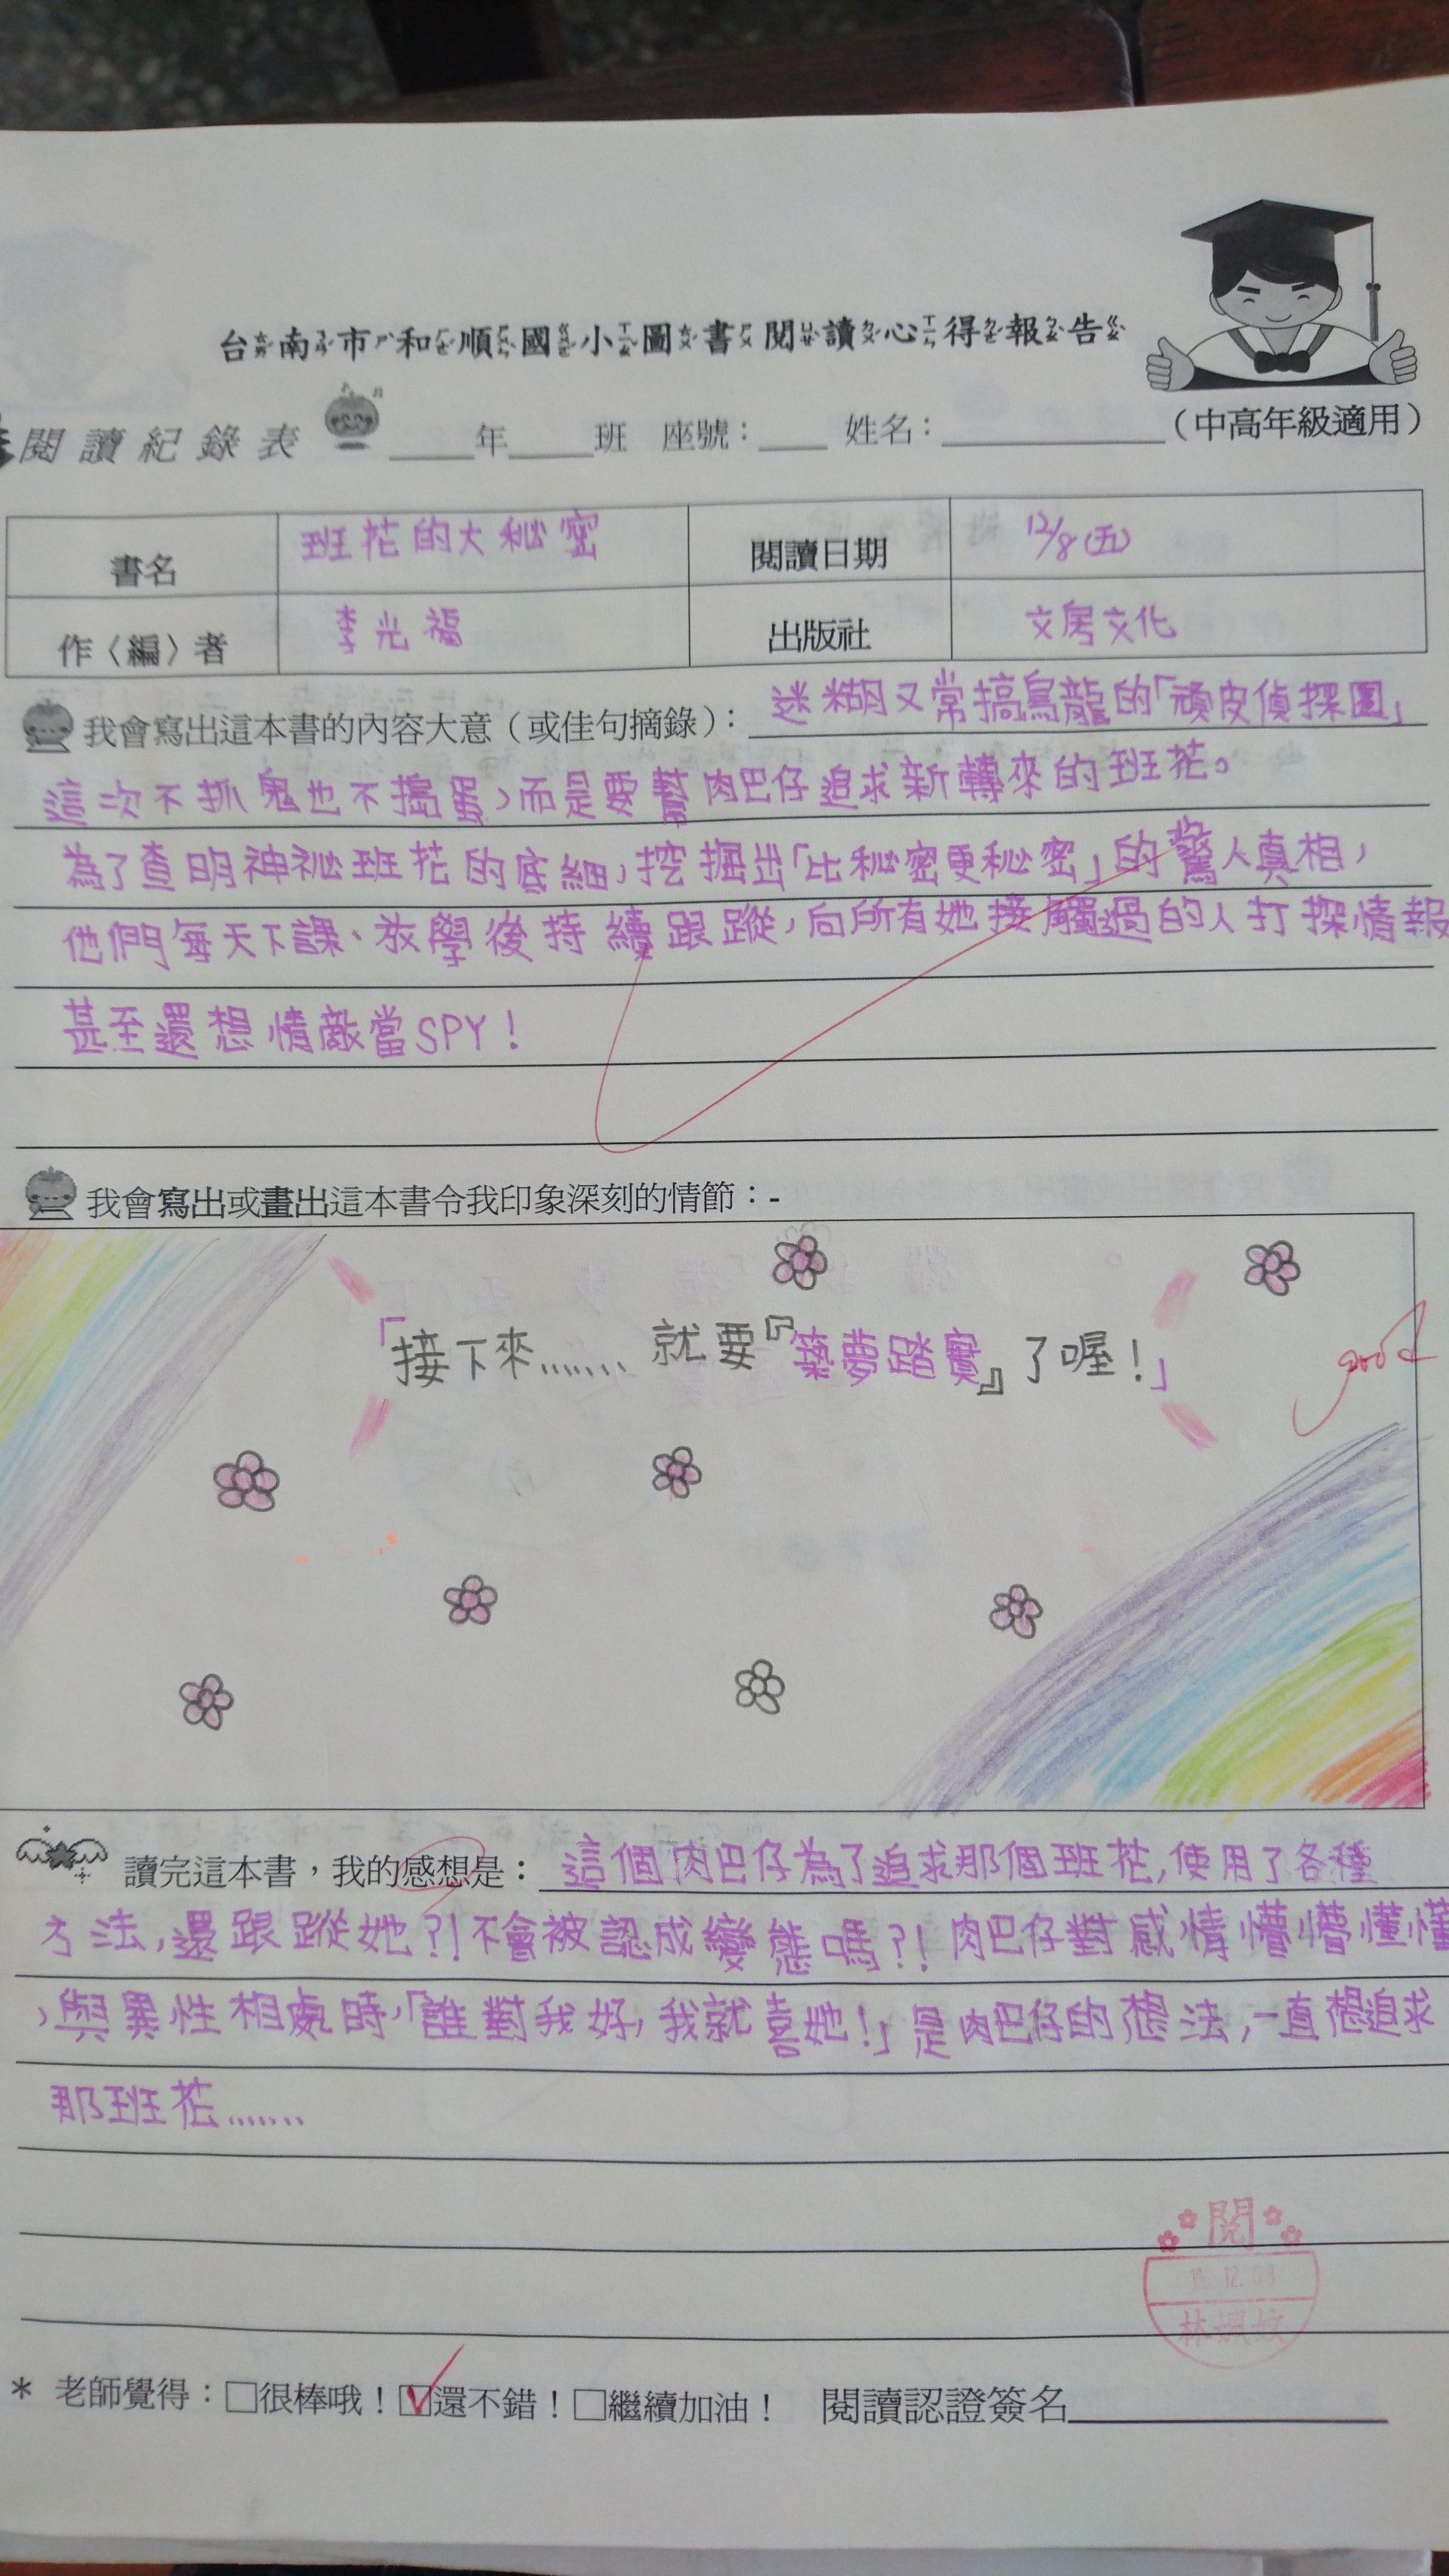 台南市和順國小圖書閱讀心得報告
閱讀紀錄表 年 班 座號： 姓名： （中高年級適用）
書名 班花的大秘密 閱讀日期 12/8(五)
作〈編〉者 李光福 出版社 文房文化
我會寫出這本書的內容大意（或佳句摘錄）： 迷糊又常搞烏龍的「頑皮偵探團」
這次不抓鬼也不搗蛋，而是要幫肉巴仔追求新轉來的班花。
為了查明神祕班花的底細，挖掘出「比秘密更秘密」的驚人真相，
他們每天下課、放學後持續跟蹤，向所有她接觸過的人打探情報
甚至還想情敵當SPY！
我會寫出或畫出這本書令我印象深刻的情節：-
「接下來…… 就要『築夢踏實』了喔！」
good
讀完這本書，我的感想是： 這個肉巴仔為了追求那個班花，使用了各種
方法，還跟蹤她？！不會被認成變態嗎？！肉巴仔對感情懵懵懂懂
，與異性相處時，「誰對我好，我就喜她！」是肉巴仔的想法，一直想追求
那班花……
閱
12.08
* 老師覺得：□很棒哦！☑還不錯！□繼續加油！ 閱讀認證簽名